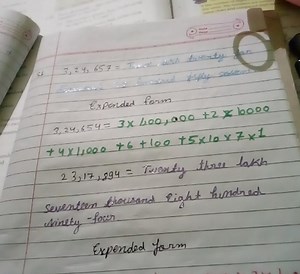 3,24,657 = Three lakh twenty four
fifty seven
Expended form
2,24,654 = 3×100,000 + 2×10000
+4×1,000 +6+100 +5×10×7×1
23,17,894 = Twenty three lakh
Seventeen thousand Eight hundred
Ninety-four
Expended form